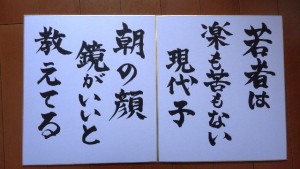 若者は
楽も苦もない
現代子
朝の顔
鏡がいいと
教えてる